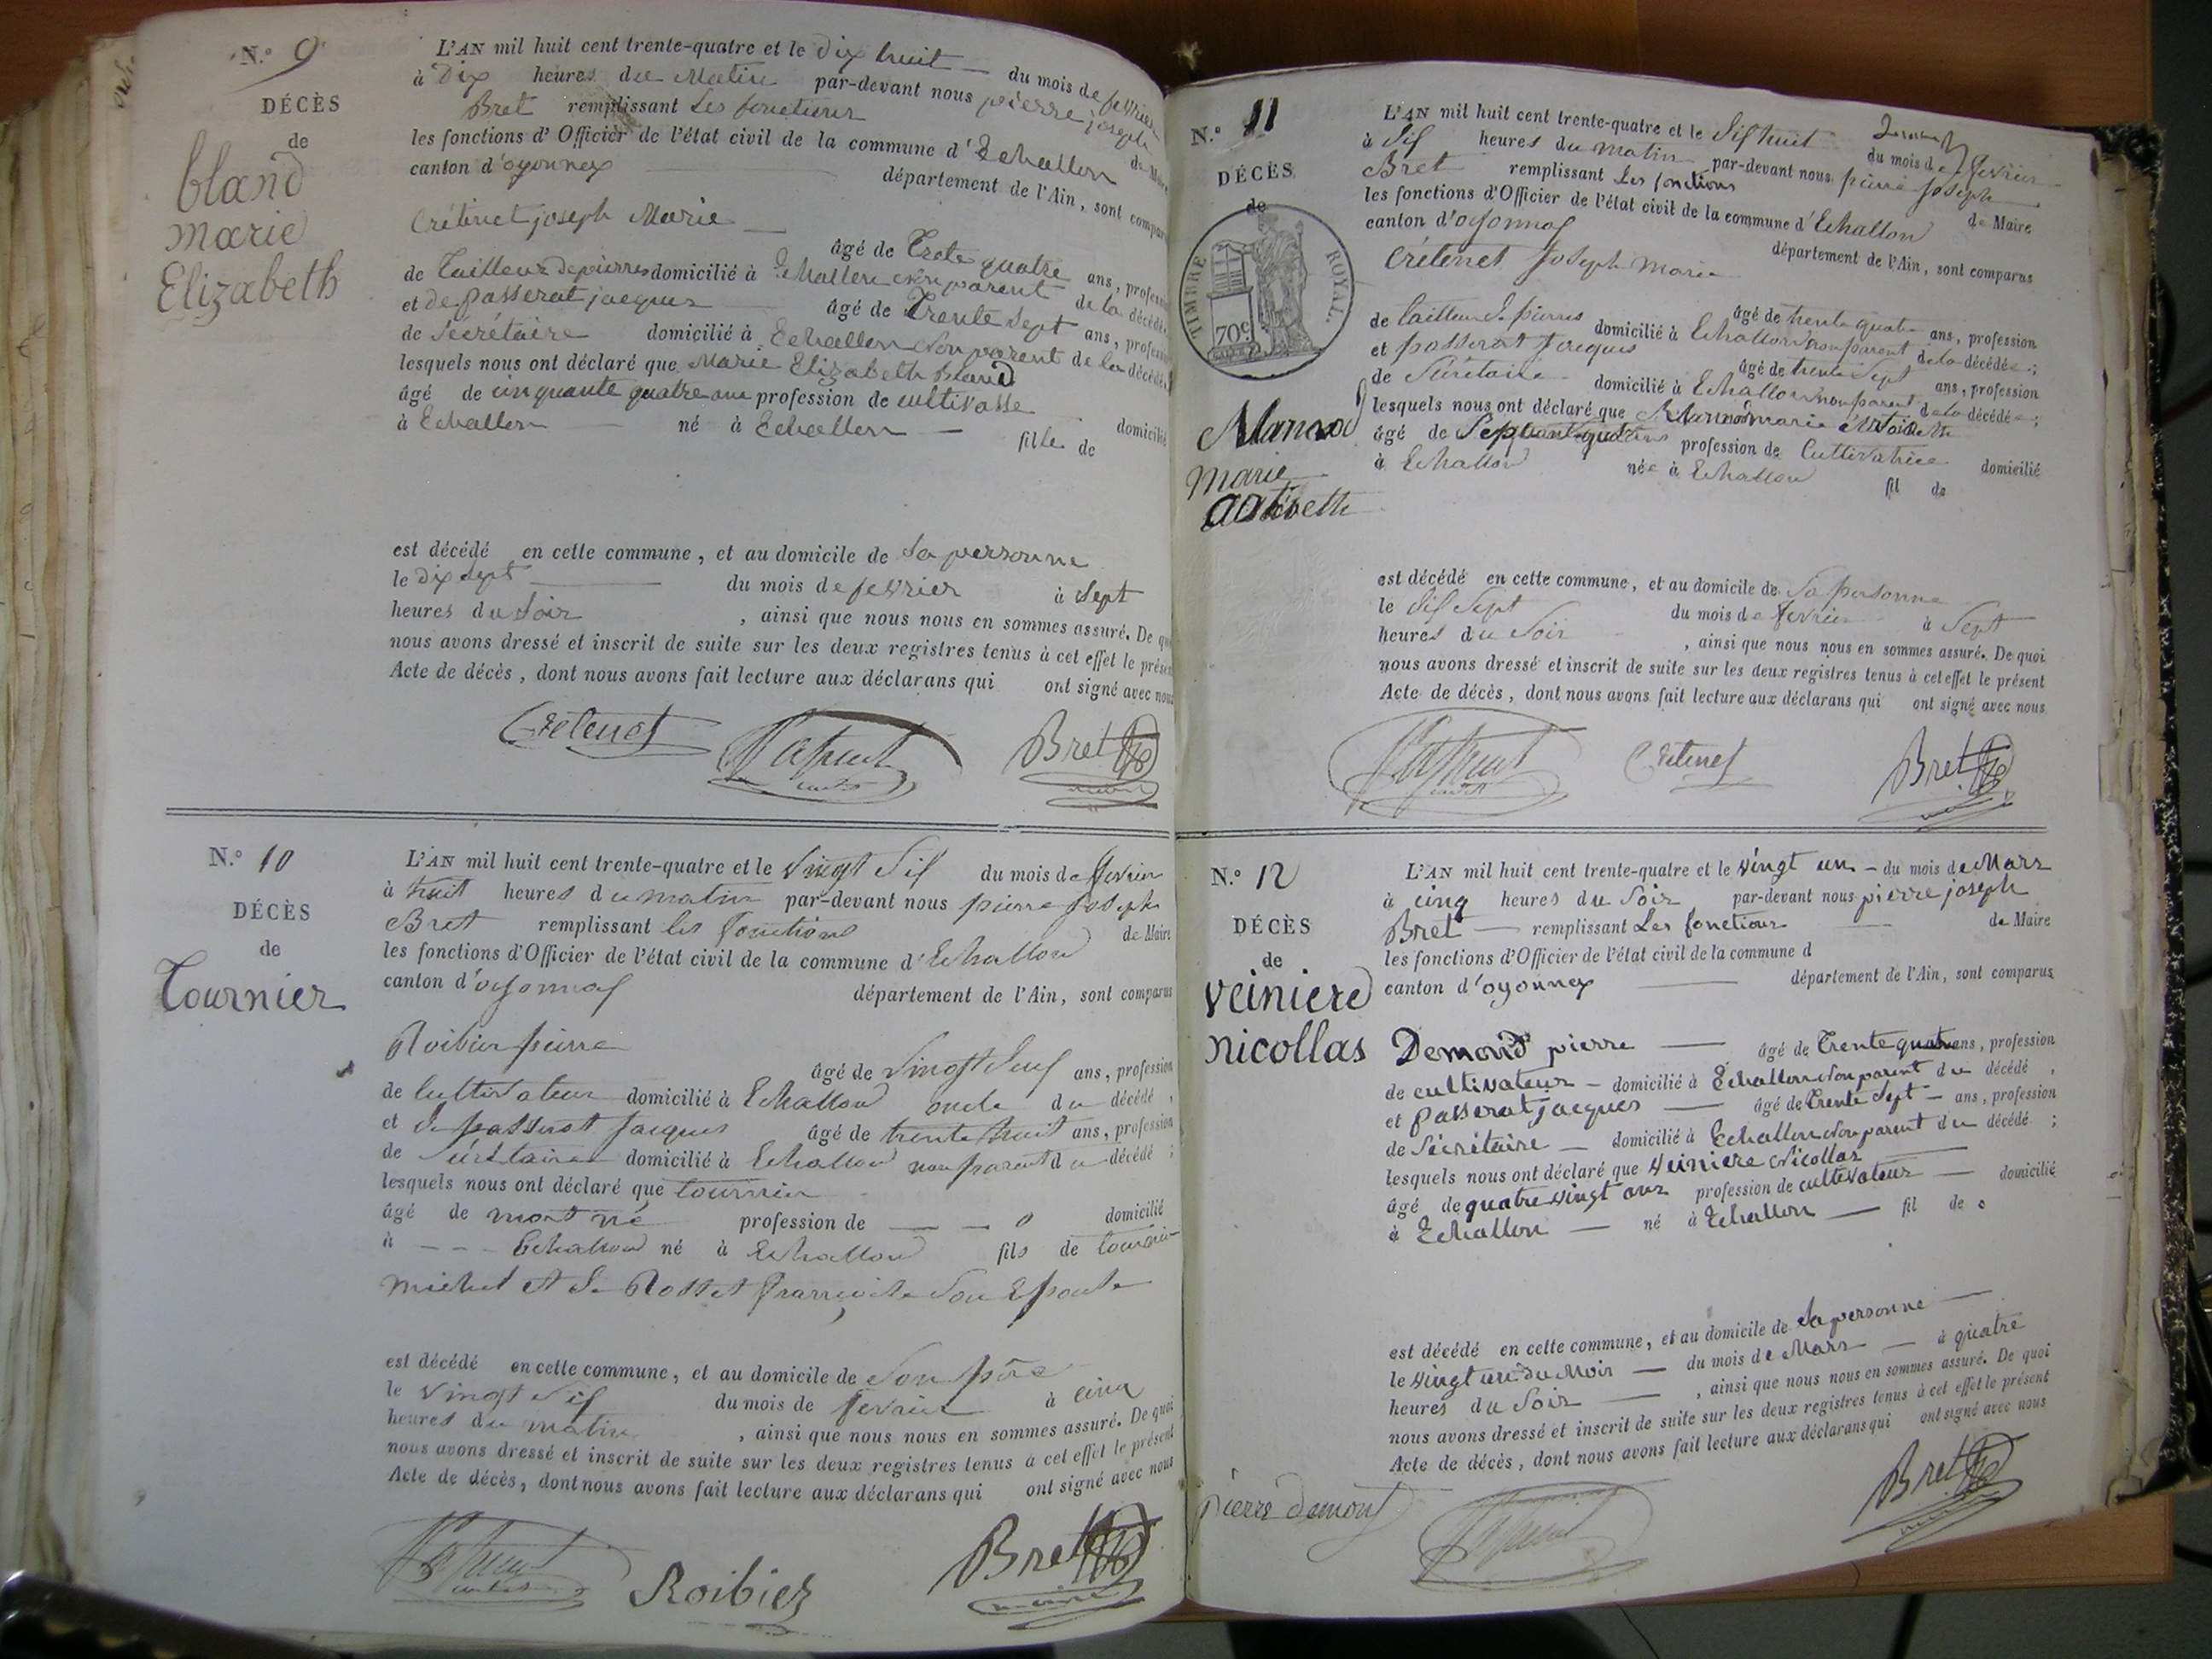 N.° 9
DÉCÈS
de
bland
marie
Elizabeth
L'AN mil huit cent trente-quatre et le dix huit du mois de fevrier
à Dix heures du Matin par-devant nous pierre joseph
Bret remplissant Les fonctions de Maire
les fonctions d'Officier de l'état civil de la commune d'Echallon
canton d'oyonnax département de l'Ain, sont comparus
Crétinet joseph Marie
âgé de Trete quatre ans, profession
de Tailleur de pierres domicilié à Echallon non parent de la décédé
et de passerat jacques âgé de Trente Sept ans, profession
de Sécrétaire domicilié à Echallon Non parent de la décédé
lesquels nous ont déclaré que Marie Elizabeth bland
âgé de cinquante quatre ans profession de domicilié
à Echallon né à Echallon fille de
est décédé en cette commune, et au domicile de Sa personne
le Dix Sept du mois de fevrier à Sept
heures du Soir, ainsi que nous nous en sommes assuré. De quoi
nous avons dressé et inscrit de suite sur les deux registres tenus à cet effet le présent
Acte de décès, dont nous avons fait lecture aux déclarans qui ont signé avec nous
Cretenet Passerat Bret
N.° 10
DÉCÈS
de
Tournier
L'AN mil huit cent trente-quatre et le vingt Six du mois de fevrier
à huit heures du matin par-devant nous pierre joseph
Bret remplissant les fonctions de Maire
les fonctions d'Officier de l'état civil de la commune d'Echallon
canton d'oyonnax département de l'Ain, sont comparus
Roibier pierre
âgé de vingt neuf ans, profession
de Cultivateur domicilié à Echallon oncle du décédé,
et de passerat jacques âgé de trente huit ans, profession
de Sécrétaire domicilié à Echallon non parent du décédé;
lesquels nous ont déclaré que tournier
âgé de mort né profession de — — 0 domicilié
à - - - Echallon né à Echallon fils de tournier
michel et de Rosset françoise Son Epouse
est décédé en cette commune, et au domicile de Son père
le vingt Six du mois de fevrier à cinq
heures du matin, ainsi que nous nous en sommes assuré. De quoi
nous avons dressé et inscrit de suite sur les deux registres tenus à cet effet le présent
Acte de décès, dont nous avons fait lecture aux déclarans qui ont signé avec nous
Passerat Roibier Bret
maire
N.° 11
DÉCÈS
de
TIMBRE ROYAL.
70c
marie
L'AN mil huit cent trente-quatre et le dix huit du mois de fevrier
à dix heures du matin par-devant nous pierre joseph
Bret remplissant Les fonctions de Maire
les fonctions d'Officier de l'état civil de la commune d'Echallon
canton d'oyonnax département de l'Ain, sont comparus
Crétenet Joseph marie
âgé de trente quatre ans, profession
de tailleur de pierres domicilié à Echallon non parent de la décédée;
et passerat jacques âgé de trente Sept ans, profession
de Sécrétaire domicilié à Echallon non parent de la décédée;
lesquels nous ont déclaré que marie
âgé de profession de Cultivatrice domicilié
à Echallon née à Echallon fil de
est décédé en cette commune, et au domicile de Sa personne
le dix Sept du mois de fevrier à Sept
heures du Soir, ainsi que nous nous en sommes assuré. De quoi
nous avons dressé et inscrit de suite sur les deux registres tenus à cet effet le présent
Acte de décès, dont nous avons fait lecture aux déclarans qui ont signé avec nous
Passerat Cretenet Bret
N.° 12
DÉCÈS
de
veiniere
nicollas
L'AN mil huit cent trente-quatre et le vingt un - du mois de Mars
à cinq heures du Soir par-devant nous pierre joseph
Bret — remplissant Les fonctions de Maire
les fonctions d'Officier de l'état civil de la commune d
canton d'oyonnax département de l'Ain, sont comparus
Demond pierre — âgé de Trente quatre ans, profession
de cultivateur - domicilié à Echallon Non parent du décédé,
et passerat jacques — âgé de Trente Sept - ans, profession
de Sécrétaire — domicilié à Echallon Non parent du décédé;
lesquels nous ont déclaré que veiniere Nicollas
âgé de quatre vingt ans profession de cultivateur — domicilié
à Echallon — né à Echallon — fil de
est décédé en cette commune, et au domicile de Sa personne —
le vingt un du Mois — du mois de Mars — à quatre
heures du Soir —, ainsi que nous nous en sommes assuré. De quoi
nous avons dressé et inscrit de suite sur les deux registres tenus à cet effet le présent
Acte de décès, dont nous avons fait lecture aux déclarans qui ont signé avec nous
pierre demont Passerat Bret